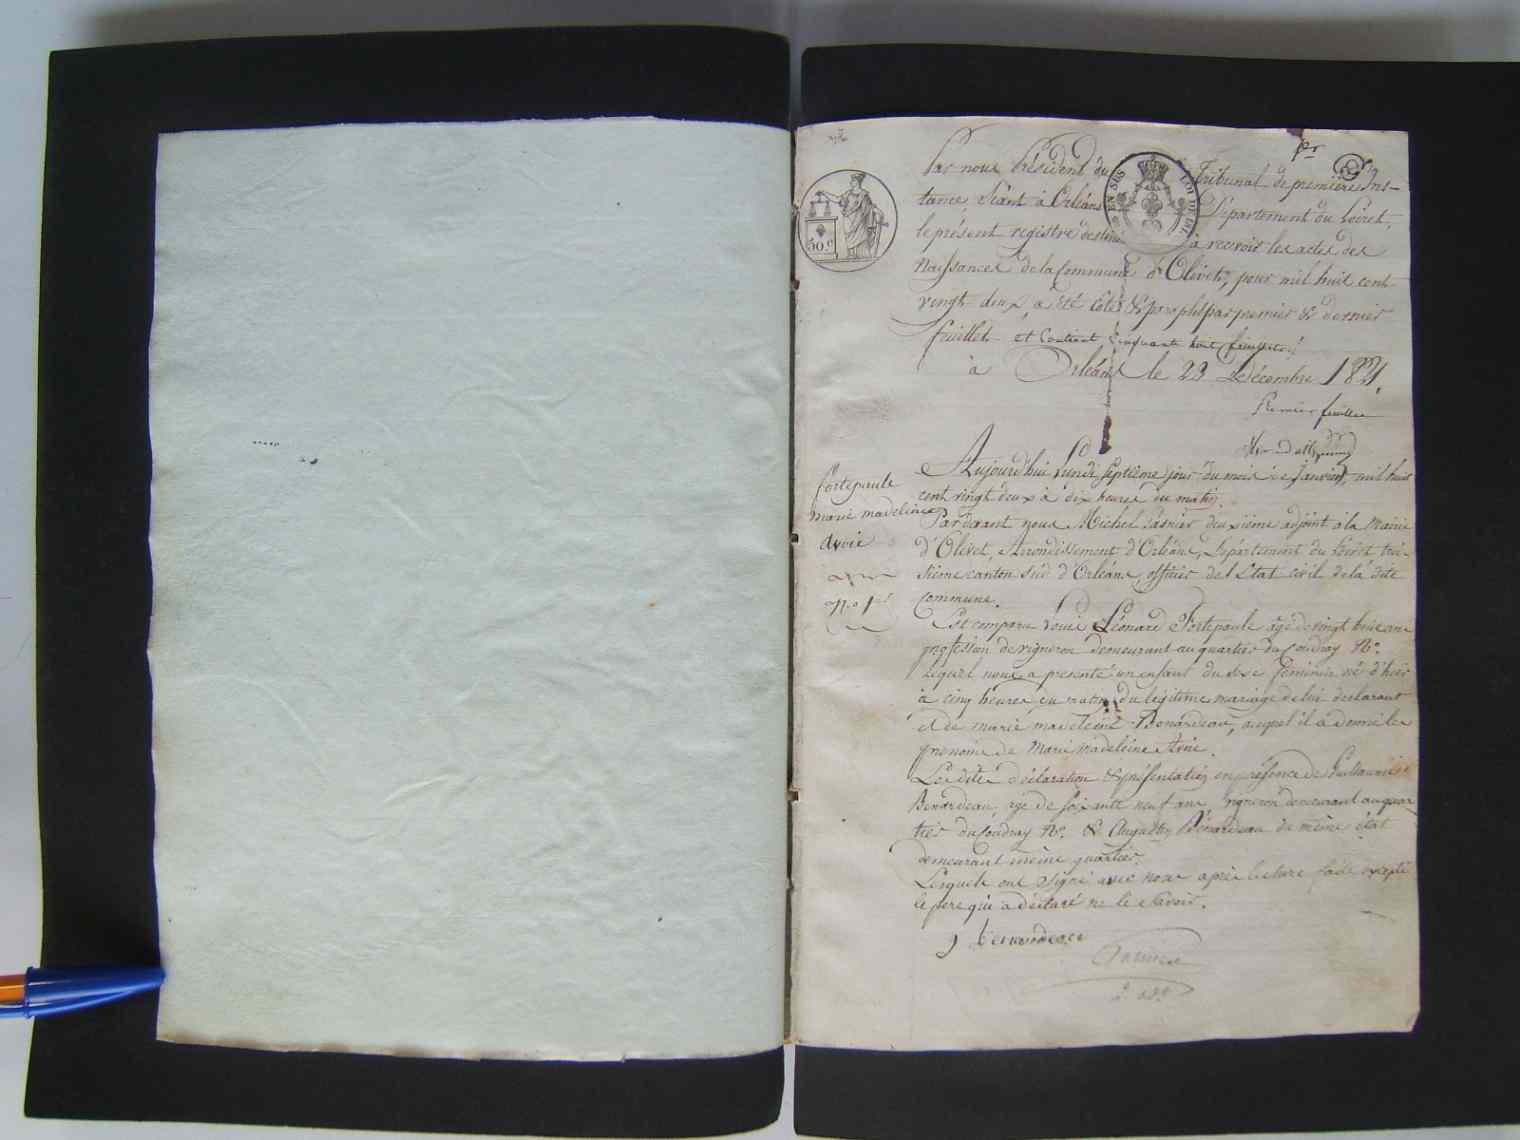 Per
50 c
EN SUS
LOI DE
Par nous Président du Tribunal de première Ins-
tance séant à Orléans Département du Loiret,
le présent registre destiné à recevoir les actes des
Naissances de la Commune d'Olivet, pour mil huit cent
vingt deux a été Coté & paraphé par premier & dernier
feuillet et Contient Cinquante huit feuillets
à Orléans le 23 Décembre 1821.
Premier feuillet
fortepaule
marie madeleine
Avoie
No 1er
Aujourd'hui Lundi Septième jour du mois de Janvier, mil huit
cent vingt deux à dix heures du matin.
Pardevant nous Michel Tasnier deuxième adjoint à la Mairie
d'Olivet, Arrondissement d'Orléans, Département du Loiret troi-
sième canton sud d'Orléans, officier de l'Etat civil de la dite
Commune.
Est comparu Louis Léonard Fortepaule âgé de vingt huit ans
profession de vigneron demeurant au quartier du Coudray No.
Lequel nous a présenté un enfant du sexe féminin né d'hier
à cinq heures du matin du légitime mariage de lui déclarant
& de marie madeleine Benardeau, auquel il a donné les
prénoms de Marie Madeleine Avoie.
Les dites déclaration & présentation en présence de Guillaume
Benardeau, âgé de soixante neuf ans, vigneron demeurant au quar
tier du Coudray No. & Augustin Benardeau de même état
demeurant même quartier.
Lesquels ont signé avec nous après lecture faite excepté
le père qui a déclaré ne le savoir.
g benardeau
Tasnier
2e adjt